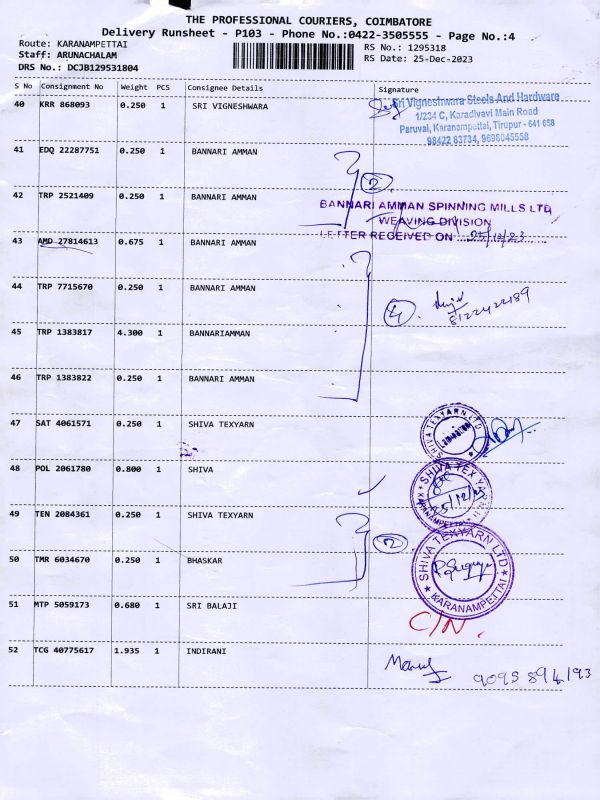 THE PROFESSIONAL COURIERS, COIMBATORE
Delivery Runsheet - P103 - Phone No.:0422-3505555 - Page No.:4
Route: KARANAMPETTAI
RS No.: 1295318
Staff: ARUNACHALAM
RS Date: 25-Dec-2023
DRS No.: DCJB129531804
S No Consignment No Weight PCS Consignee Details Signature
40 KRR 868093 0.250 1 SRI VIGNESHWARA
Sri Vigneshwara Steels And Hardware
1/234 C, Karadivavi Main Road
Paruval, Karanampettai, Tirupur - 641 658
98422 83734, 9698045558
41 EDQ 22287751 0.250 1 BANNARI AMMAN
2
42 TRP 2521409 0.250 1 BANNARI AMMAN
BANNARI AMMAN SPINNING MILLS LTD
WEAVING DIVISION
LETTER RECEIVED ON 25/12/23
43 AMD 27814613 0.675 1 BANNARI AMMAN
44 TRP 7715670 0.250 1 BANNARI AMMAN
4
8122422189
45 TRP 1383817 4.300 1 BANNARIAMMAN
46 TRP 1383822 0.250 1 BANNARI AMMAN
47 SAT 4061571 0.250 1 SHIVA TEXYARN
SHIVA TEXYARN LTD
48 POL 2061780 0.800 1 SHIVA
SHIVA TEX YARN
25/12/23
KARANAMPETTAI
49 TEN 2084361 0.250 1 SHIVA TEXYARN
2
50 TMR 6034670 0.250 1 BHASKAR
SHIVA TEXYARN LTD
KARANAMPETTAI
51 MTP 5059173 0.680 1 SRI BALAJI
C/N.
52 TCG 40775617 1.935 1 INDIRANI
9095894193